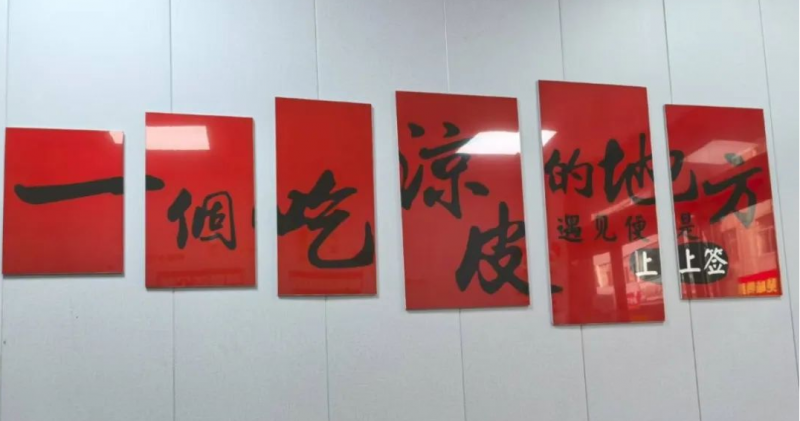 一個吃涼皮的地方
遇见便是
上上签